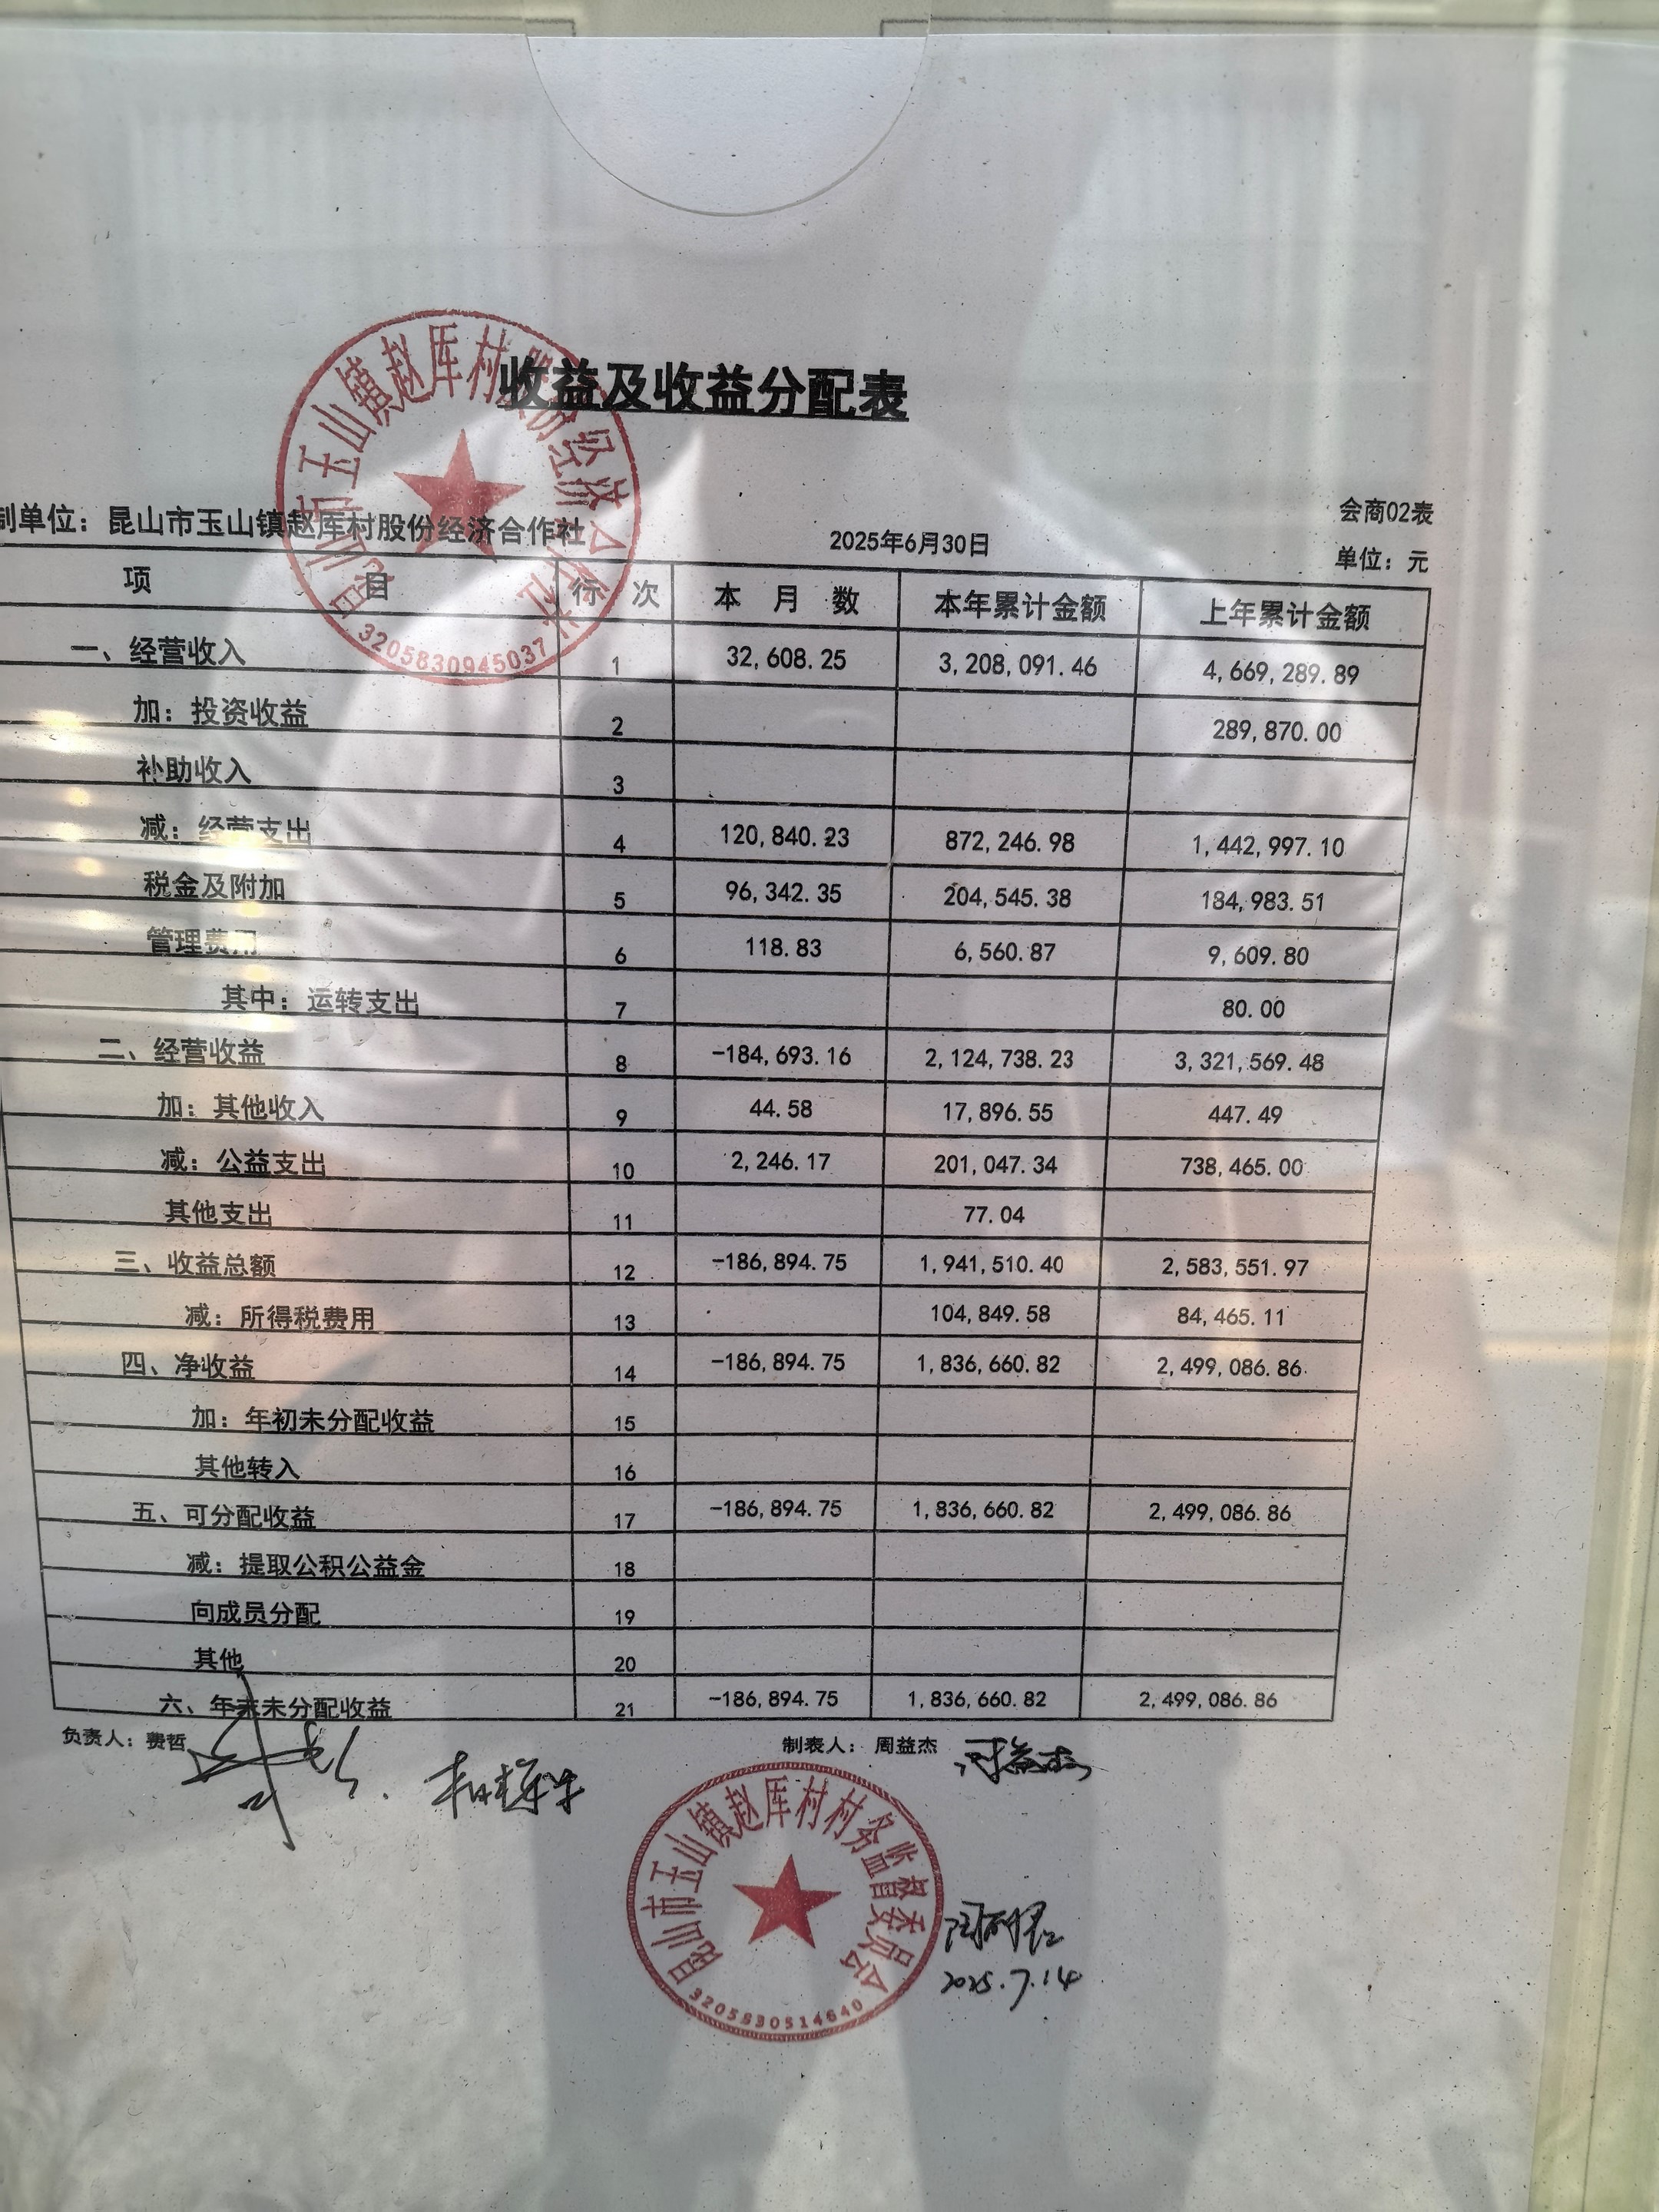 收益及收益分配表
会商02表
制单位：昆山市玉山镇赵厍村股份经济合作社 2025年6月30日 单位：元
项 目 行 次 本 月 数 本年累计金额 上年累计金额
一、经营收入 1 32,608.25 3,208,091.46 4,669,289.89
加：投资收益 2 289,870.00
补助收入 3
减：经营支出 4 120,840.23 872,246.98 1,442,997.10
税金及附加 5 96,342.35 204,545.38 184,983.51
管理费用 6 118.83 6,560.87 9,609.80
其中：运转支出 7 80.00
二、经营收益 8 -184,693.16 2,124,738.23 3,321,569.48
加：其他收入 9 44.58 17,896.55 447.49
减：公益支出 10 2,246.17 201,047.34 738,465.00
其他支出 11 77.04
三、收益总额 12 -186,894.75 1,941,510.40 2,583,551.97
减：所得税费用 13 104,849.58 84,465.11
四、净收益 14 -186,894.75 1,836,660.82 2,499,086.86
加：年初未分配收益 15
其他转入 16
五、可分配收益 17 -186,894.75 1,836,660.82 2,499,086.86
减：提取公积公益金 18
向成员分配 19
其他 20
六、年末未分配收益 21 -186,894.75 1,836,660.82 2,499,086.86
负责人：费哲 制表人：周益杰 周益杰
昆山市玉山镇赵厍村股份经济合作社
3205830945037
昆山市玉山镇赵厍村村务监督委员会
3205830514640
2025.7.14